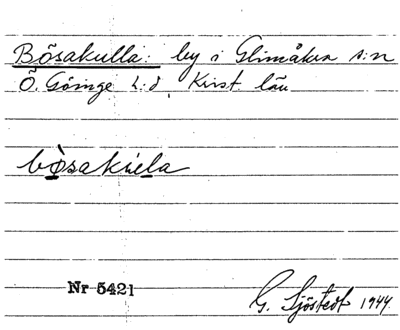 Bösakulla: by i Glimåkra s:n
Ö. Göinge h:d, Krist. län
bø̀sakuela
Nr 5421
G. Sjöstedt 1944